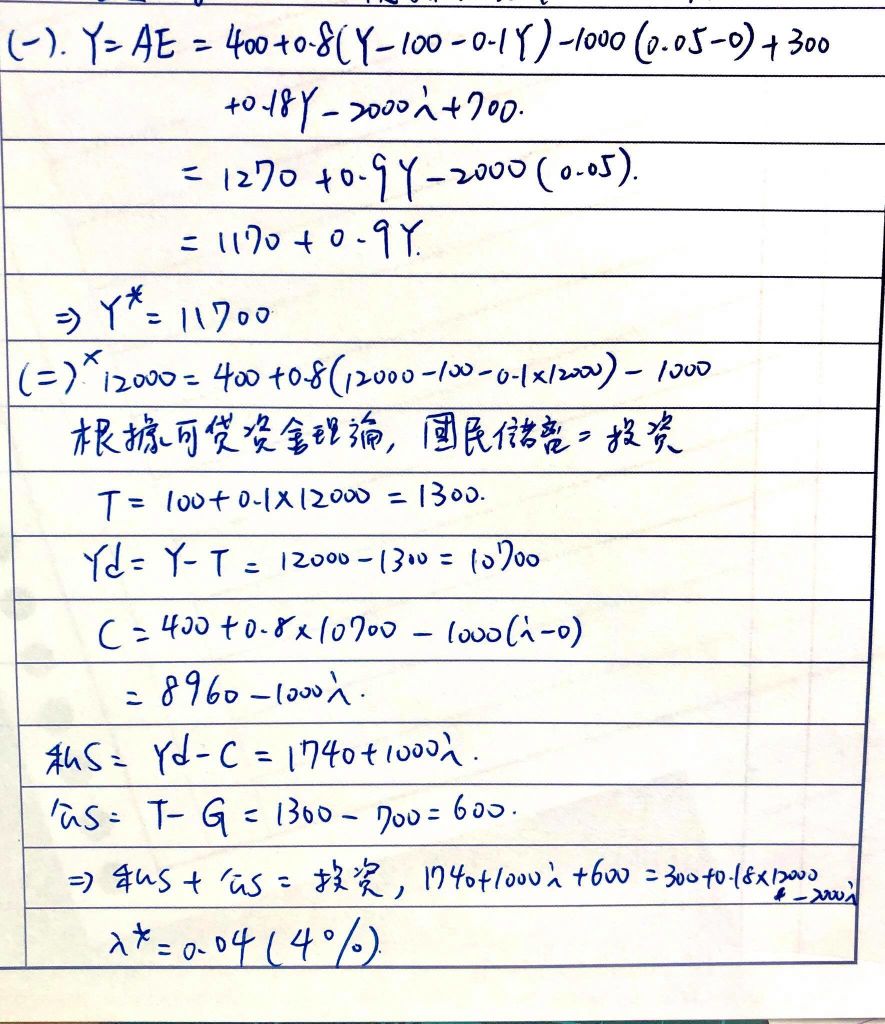 (一). Y = AE = 400+0.8(Y-100-0.1Y)-1000(0.05-0)+300
+0.18Y-2000i+700.
= 1270+0.9Y-2000(0.05).
= 1170+0.9Y.
⇒ Y* = 11700
(二)× 12000 = 400+0.8(12000-100-0.1×12000)-1000
根據可貸資金理論, 國民儲蓄=投資
T = 100+0.1×12000 = 1300.
Yd = Y-T = 12000-1300 = 10700
C = 400+0.8×10700-1000(i-0)
= 8960-1000i.
私S = Yd-C = 1740+1000i.
公S = T-G = 1300-700=600.
⇒ 私S+公S=投資, 1740+1000i+600=300+0.18×12000
-2000i
i* = 0.04 (4%)